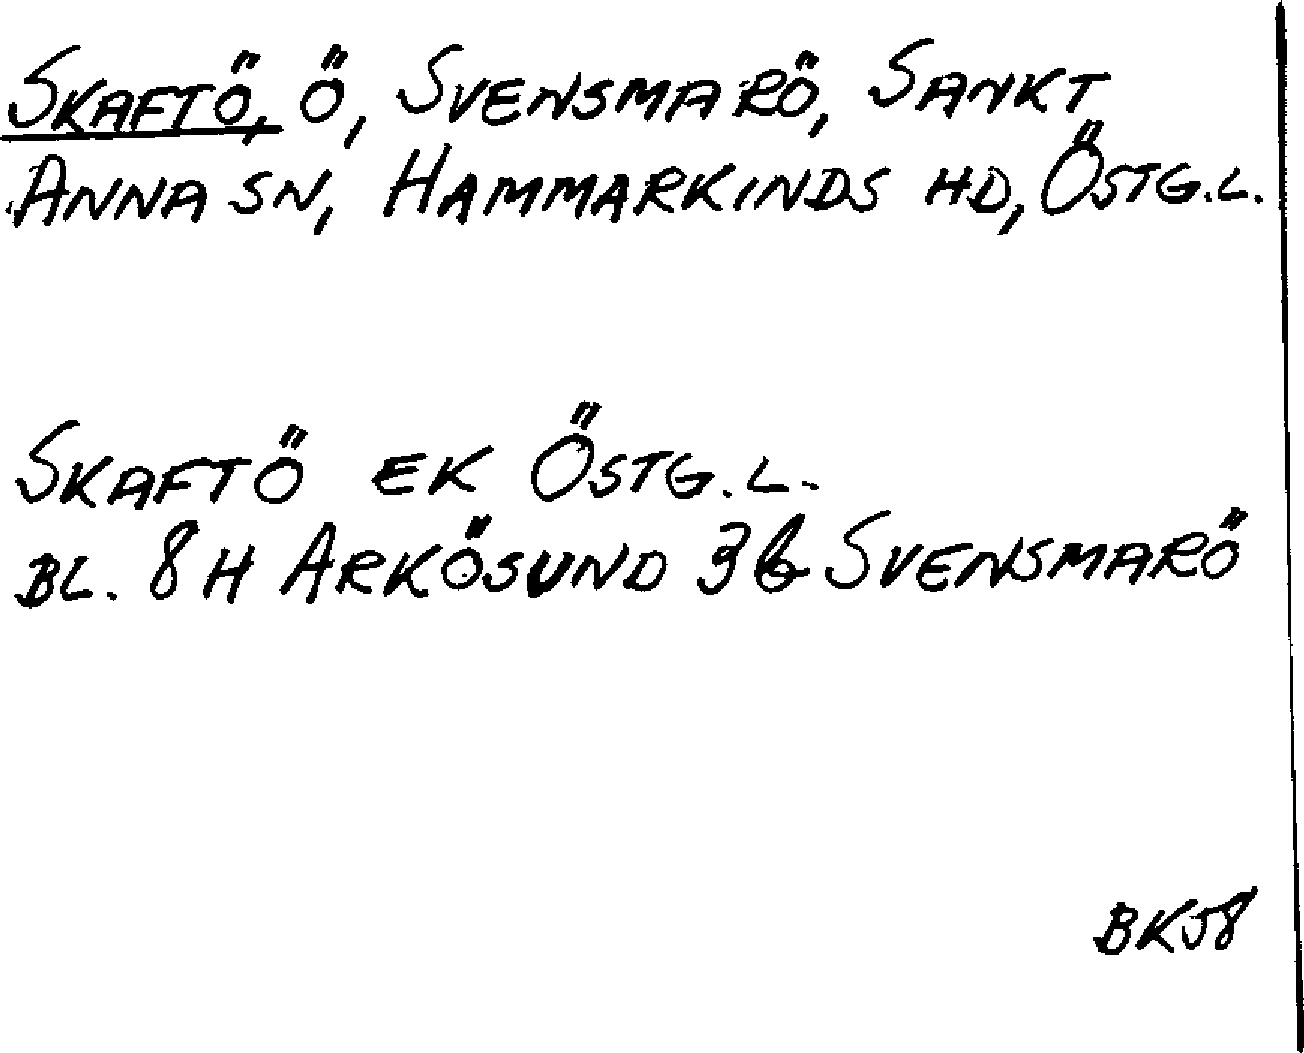 SKAFTÖ, Ö, SVENSMARÖ, SANKT
ANNA SN, HAMMARKINDS HD, ÖSTG.L.
SKAFTÖ EK ÖSTG.L.
BL. 8H ARKÖSUND 3b SVENSMARÖ
BK58